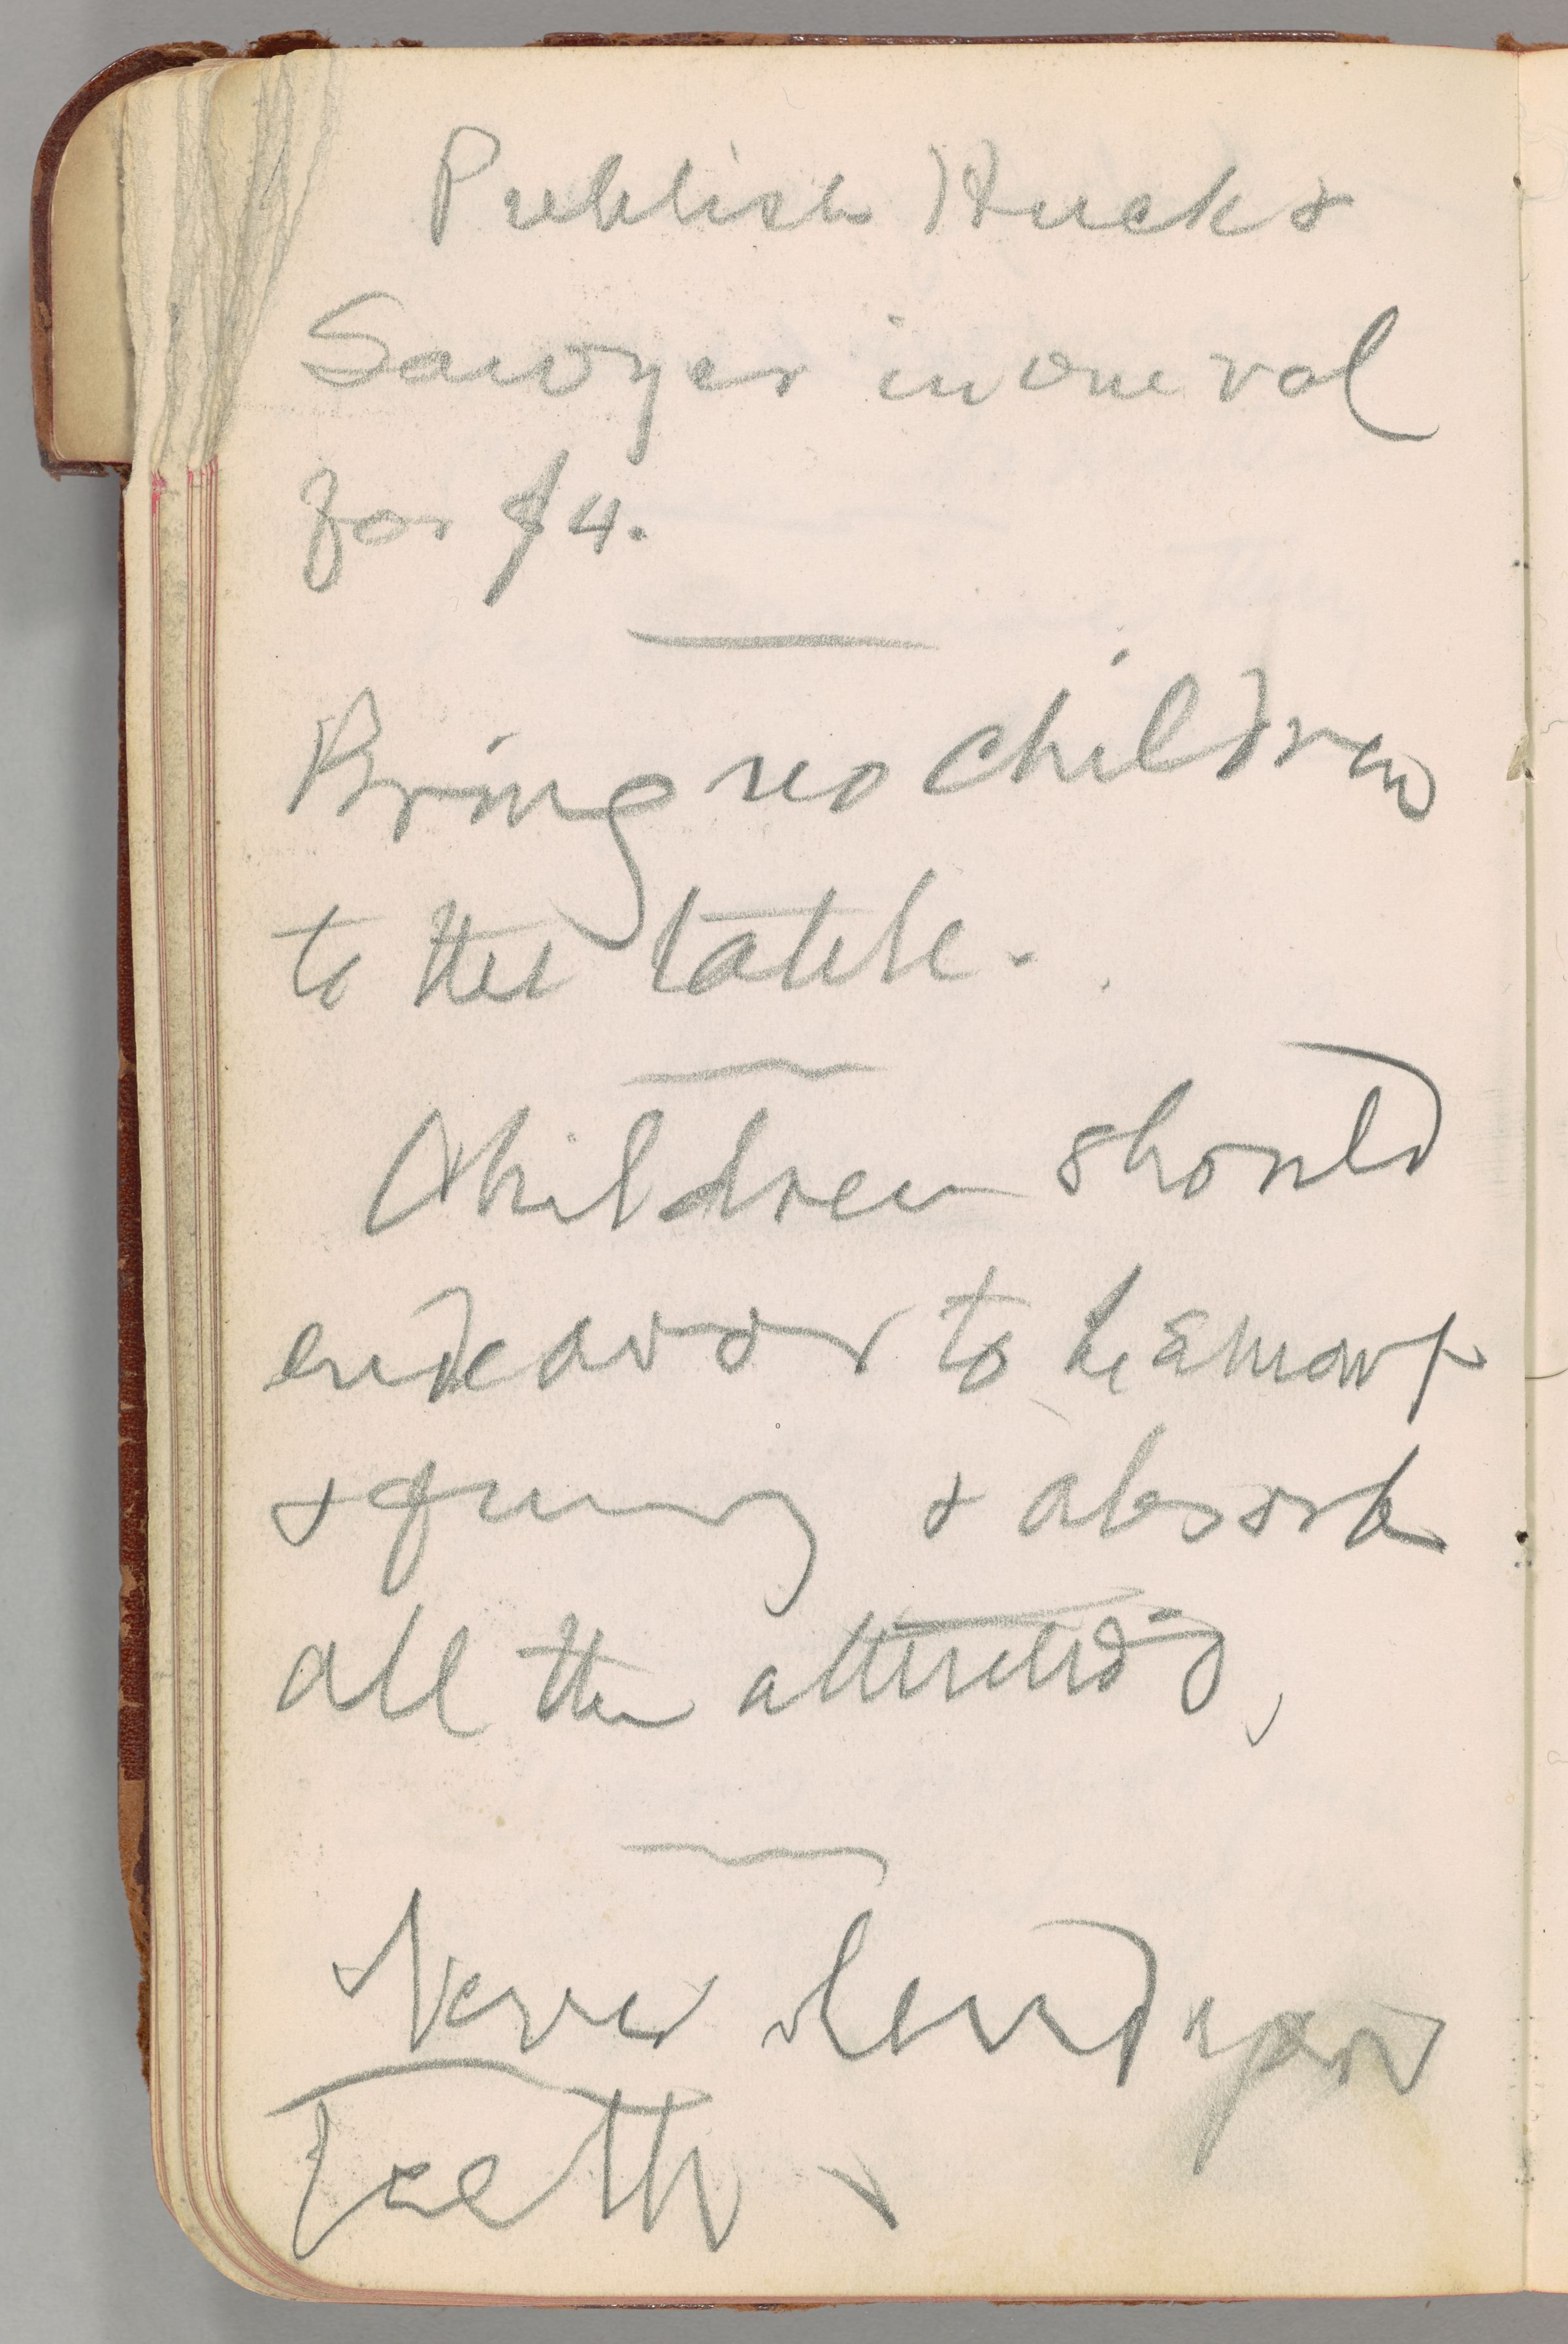 Publish Huck &
Sawyer in one vol
for $4.
Bring no children
to the table.
Children should
endeavor to be smart
& funny & absorb
all the attention,
Never lend your
Teeth.